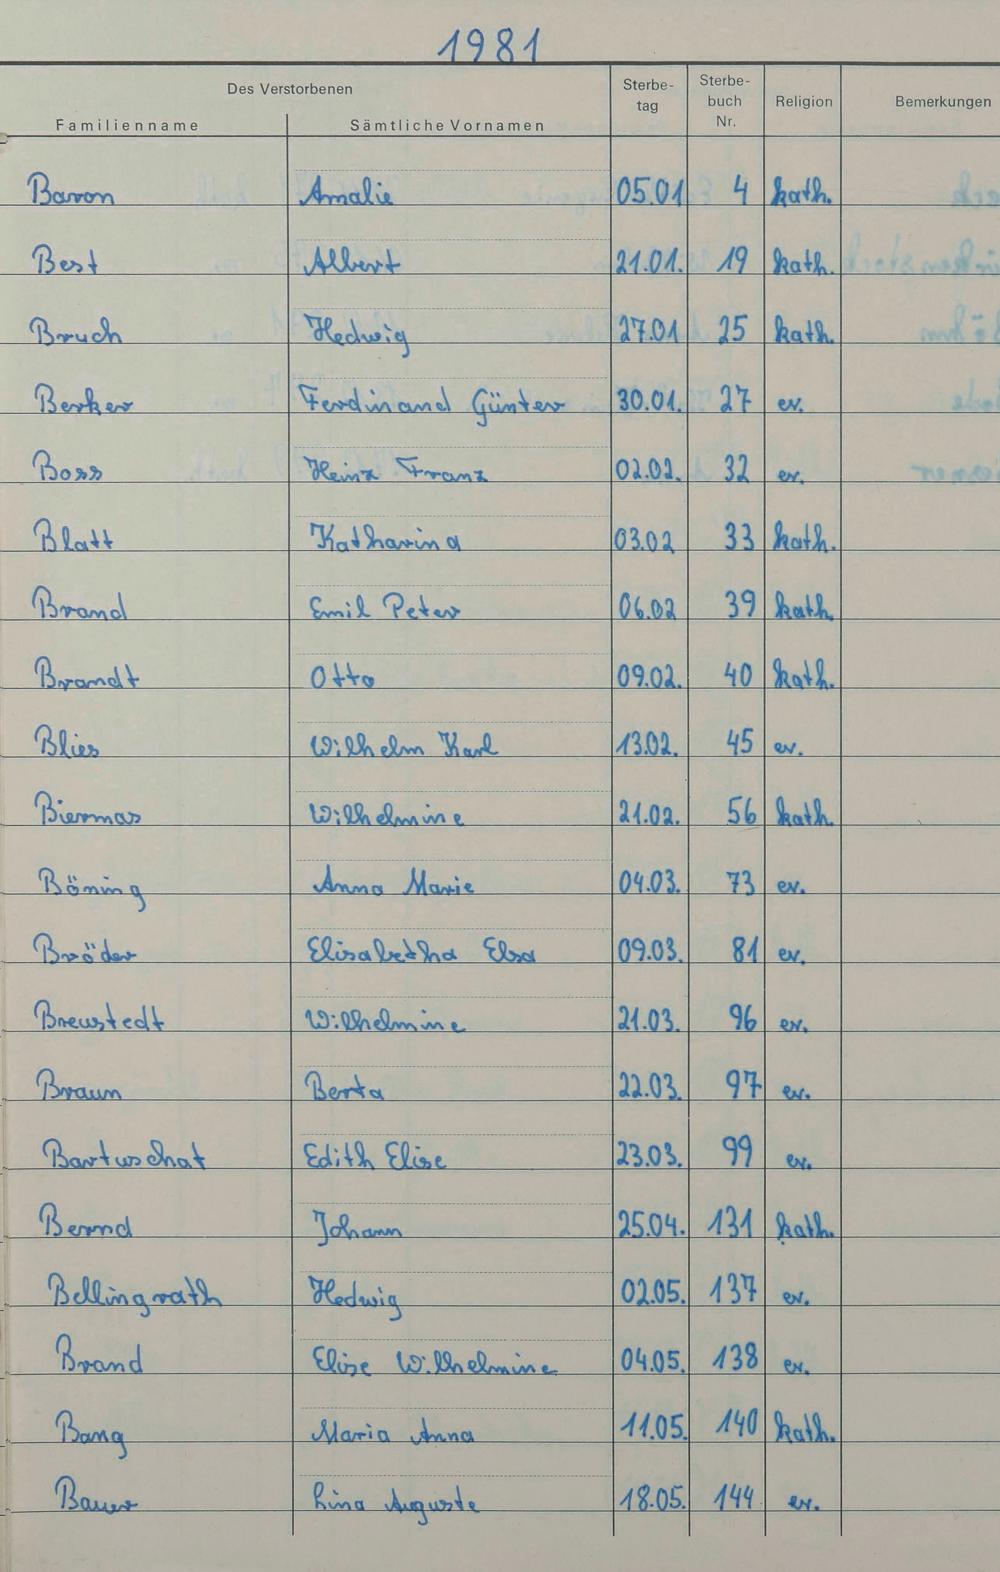 1981
Des Verstorbenen
Familienname Sämtliche Vornamen Sterbe-tag Sterbe-buch Nr. Religion Bemerkungen
Baron Amalie 05.01 4 kath.
Best Albert 21.01. 19 kath.
Bruch Hedwig 27.01 25 kath.
Berker Ferdinand Günter 30.01. 27 ev.
Boss Heinz Franz 02.02. 32 ev.
Blatt Katharina 03.02 33 kath.
Brand Emil Peter 06.02 39 kath.
Brandt Otto 09.02. 40 kath.
Blies Wilhelm Karl 13.02. 45 ev.
Biermas Wilhelmine 21.02. 56 kath.
Böning Anna Marie 04.03. 73 ev.
Bröder Elisabetha Elsa 09.03. 81 ev.
Breustedt Wilhelmine 21.03. 96 ev.
Braun Berta 22.03. 97 ev.
Bartuschat Edith Elise 23.03. 99 ev.
Bernd Johann 25.04. 131 kath.
Bellingrath Hedwig 02.05. 137 ev.
Brand Elise Wilhelmine 04.05. 138 ev.
Bang Maria Anna 11.05. 140 kath.
Bauer Lina Auguste 18.05. 144 ev.